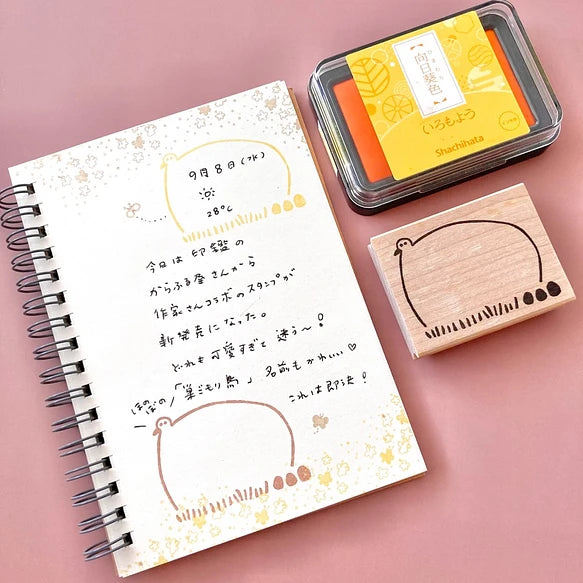 9月8日(水)
28℃
今日は印鑑の
からふる堂さんから
作家さんコラボのスタンプが
新発売になった。
どれも可愛すぎて迷う〜!
ほのぼの「巣ごもり鳥」名前もかわいい♡
これは即決!
ひまわりいろ
向日葵色
いろもよう
Shachihata